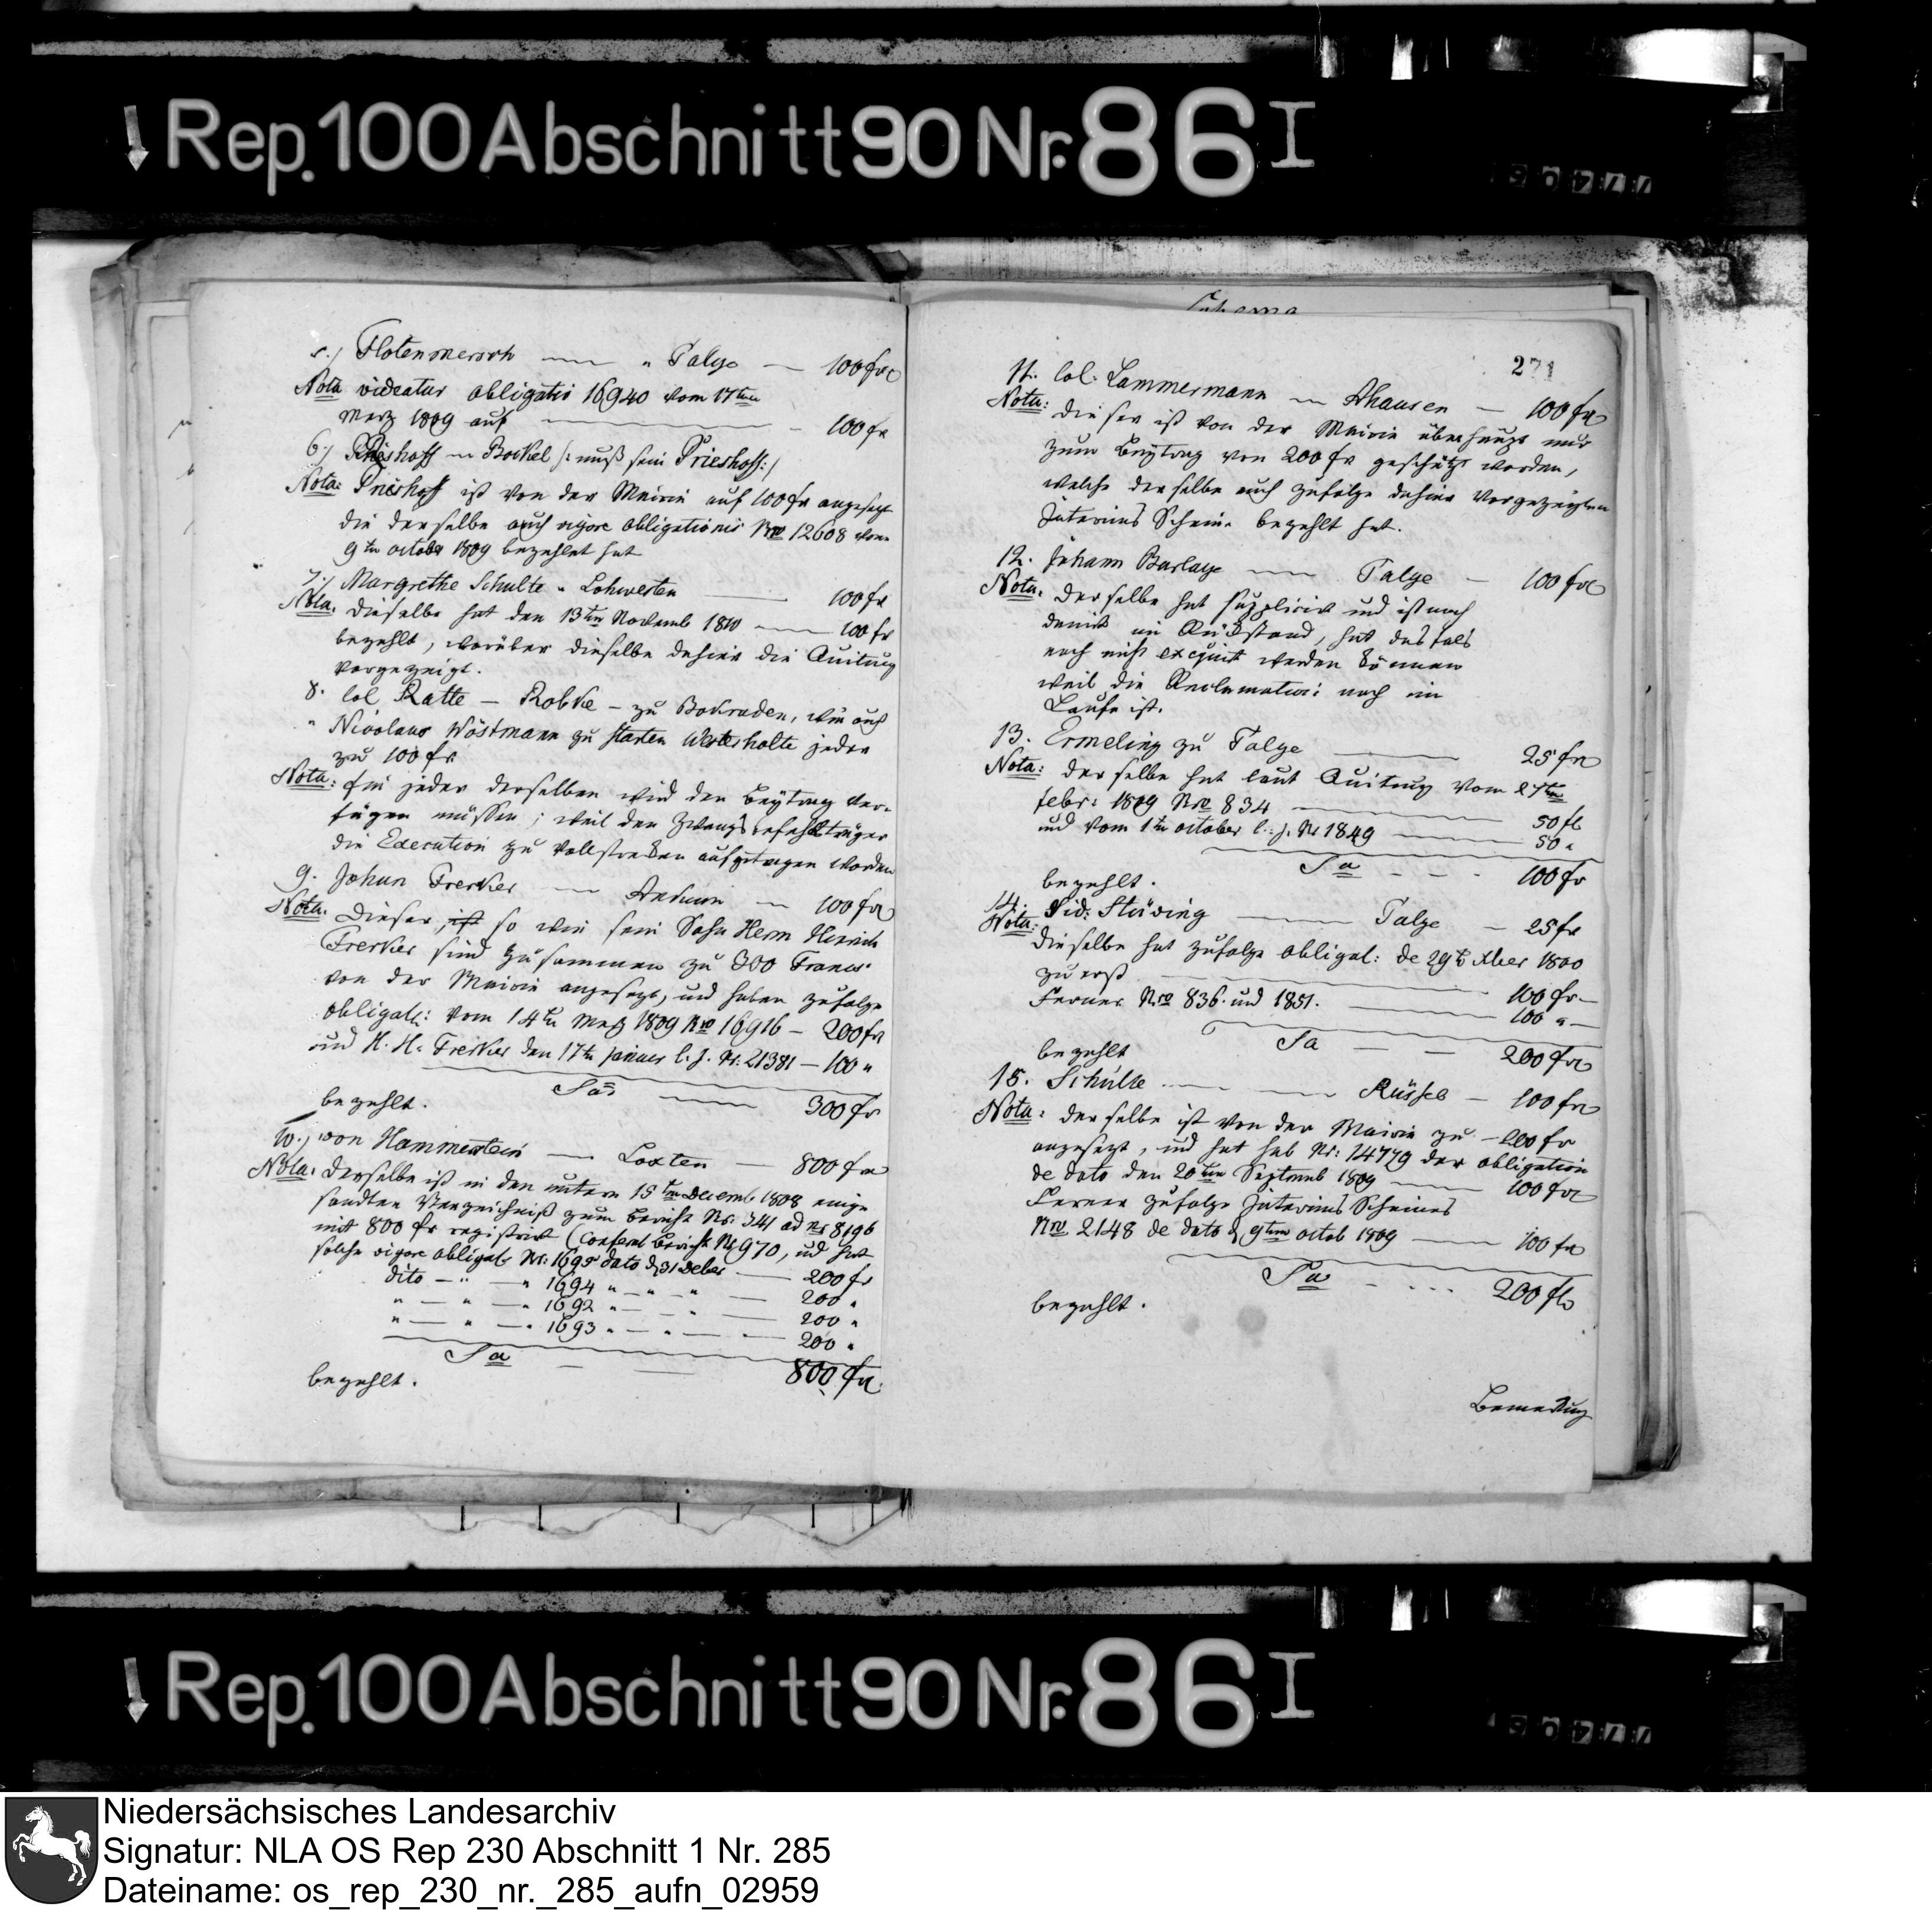 ↓ Rep. 100 Abschnitt 90 Nr. 86 I
5.) Flotenmersch — " Talge — 100 frc
Nota videatur obligatio 16940 vom 17ten
Merz 1809 auf — 100 fr
6.) Rieshoff — Bockel /: muß sein Prieshoff :/
Nota: Prieshoff ist von der Mairie auf 100 fr angesezt
die derselbe auch vigore obligationis Nro 12608 vom
9ten october 1809 bezahlet hat
7.) Margrethe Schulte " Lohwesten — 100 fr
Nota. dieselbe hat den 13ten Novemb 1810 — 100 fr
bezahlt, worüber dieselbe dahier die Quitung
vorgezeigt.
8. Col. Ratte — Robke — zu Bokraden, wie auch
" Nicolaus Wöstmann zu starten Westerholte jeder
zu 100 fr
Nota: für jeder derselben wird den Beytrag ver-
fügen müssen; weil den Zwangsbefehlträger
die Execution zu vollstrecken aufgetragen worden
9. Johan Frerker — Ankum — 100 fr
Nota. Dieser, ist so wie sein Sohn Herm Hinrich
Frerker sind zusammen zu 300 Francs
von der Mairie angesezt, und haben zufolge
obligat: vom 14ten Merz 1809 Nro 16916 — 200 fr
und H. H. Frerker den 17ten januar l. J. Nr: 21381 — 100 "
Sa — 300 fr
bezahlt.
10.) von Hammerstein — Loxten — 800 fr
Nota. Derselbe ist in den unterm 15ten Decemb 1808 einge
sandten Verzeichniß zum Bericht Nr: 341 ad nr 8196
mit 800 fr registrirt (Conferat Bericht Nr 970, und hat
solche vigore obligat Nr: 1695 dato d 31 Decber — 200 fr
dito — " — " 1694 " — " — " — 200 "
" — " — " 1692 " — " — 200 "
" — " — " 1693 " — " — 200 "
Sa — 800 fr.
bezahlt.
Schema
271
11. Col. Lammermann — Ahausen — 100 fr
Nota: dieser ist von der Mairie überhaupt nur
zum Beytrag von 200 fr geschätzt worden,
welche derselbe auch zufolge dahier vorgezeigten
Interims Schein bezahlt hat.
12. Johann Barlage — Talge — 100 frc
Nota. derselbe hat supplicirt und ist noch
damit im Rückstand, hat desfals
noch nicht exequirt werden können
weil die Reclamation noch im
Laufe ist.
13. Ermeling zu Talge — 25 fr
Nota: derselbe hat laut Quitung vom 27ten
febr: 1809 Nro 834 — 50 fr
und vom 1ten october l. j. Nr 1849 — 50 "
Sa — 100 fr
bezahlt.
14. Vid: Stüving — Talge — 25 fr
Nota: dieselbe hat zufolge obligat: de 29t Xber 1800
zu erst — 100 fr —
Ferner Nro 836 und 1851. — 100 " —
Sa — 200 fr
bezahlt
15. Schulte — Rüssel — 100 fr
Nota: derselbe ist von der Mairie zu — 200 fr
angesezt, und hat sub Nr: 14779 der obligation
de dato den 20ten Septemb 1809 — 100 fr
Ferner zufolge Interims Scheines
Nro 2148 de dato d 9ten octob 1809 — 100 fr
Sa — 200 fr
bezahlt.
Bemerkung
↓ Rep. 100 Abschnitt 90 Nr. 86 I
Niedersächsisches Landesarchiv
Signatur: NLA OS Rep 230 Abschnitt 1 Nr. 285
Dateiname: os_rep_230_nr._285_aufn_02959